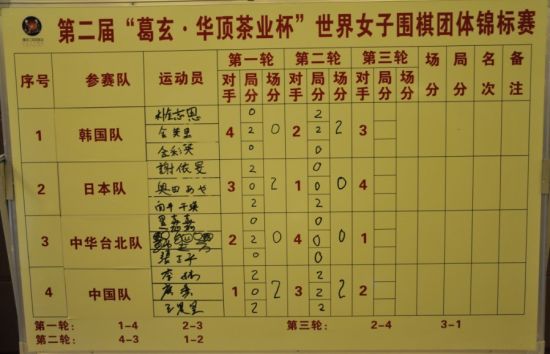 第二届“葛玄·华顶茶业杯”世界女子围棋团体锦标赛
序号 参赛队 运动员 第一轮 第二轮 第三轮 场分 局分 名次 备注
对手 局分 场分 对手 局分 场分 对手 局分 场分
0 2
1 韩国队 金美里 4 2 0 2 2 2 3
金彩英 0 0
謝依旻 2 0
2 日本队 奥田あや 3 0 2 1 0 0 4
向井千瑛 2 2
黑嘉嘉 0 0
3 中华台北队 2 2 0 4 0 0 1
0 0
李赫 2 2
4 中国队 1 0 2 3 2 2 2
王晨星 2 2
第一轮: 1-4 2-3 第三轮: 2-4 3-1
第二轮: 4-3 1-2